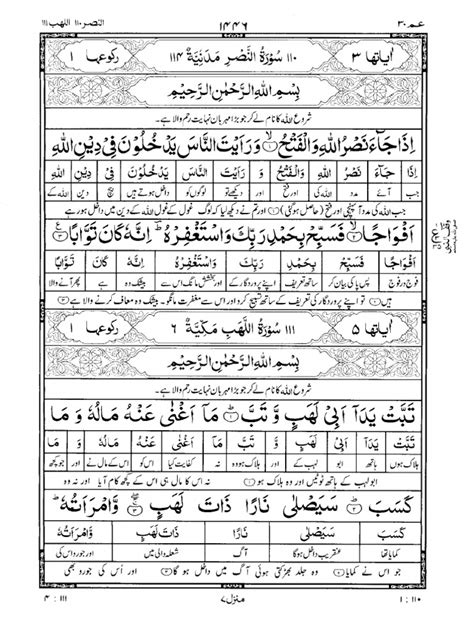 عم ۳۰ ۱۴۴۶ النصر ۱۱۰ اللهب ۱۱۱
اٰیاتها ۳ ۱۱۰ سُوْرَةُ النَّصْرِ مَدَنِیَّةٌ ۱۱۴ رکوعها ۱
بِسْمِ اللهِ الرَّحْمٰنِ الرَّحِیْمِ
شروع اللہ کا نام لے کر جو بڑا مہربان نہایت رحم والا ہے
اِذَا جَآءَ نَصْرُ اللهِ وَالْفَتْحُ ۱ وَرَاَیْتَ النَّاسَ یَدْخُلُوْنَ فِیْ دِیْنِ اللهِ
اِذَا جَآءَ نَصْرُ اللهِ وَ الْفَتْحُ وَ رَاَیْتَ النَّاسَ یَدْخُلُوْنَ فِیْ دِیْنِ اللهِ
جب آئے مدد اللہ کی اور فتح اور دیکھے تو لوگوں کو داخل ہوتے ہیں بیچ دین اللہ کے
جب اللہ کی مدد آ پہنچی اور فتح (حاصل ہو گئی) ۱ اور تم نے دیکھ لیا کہ لوگ غول کے غول اللہ کے دین میں داخل ہو رہے
اَفْوَاجًا ۲ فَسَبِّحْ بِحَمْدِ رَبِّكَ وَاسْتَغْفِرْهُ اِنَّهٗ كَانَ تَوَّابًا ۳
اَفْوَاجًا فَسَبِّحْ بِحَمْدِ رَبِّكَ وَاسْتَغْفِرْهُ اِنَّهٗ كَانَ تَوَّابًا
فوج در فوج پس پاکی بیان کر ساتھ تعریف اپنے پروردگار کے اور بخشش مانگ اس سے بیشک وہ ہے پھر آنے والا
ہیں ۲ تو اپنے پروردگار کی تعریف کے ساتھ تسبیح کرو اور اس سے مغفرت مانگو۔ بیشک وہ معاف کرنے والا ہے ۳
اٰیاتها ۵ ۱۱۱ سُوْرَةُ اللَّهَبِ مَکِّیَّةٌ ۶ رکوعها ۱
بِسْمِ اللهِ الرَّحْمٰنِ الرَّحِیْمِ
شروع اللہ کا نام لے کر جو بڑا مہربان نہایت رحم والا ہے
تَبَّتْ یَدَآ اَبِیْ لَهَبٍ وَّتَبَّ ۱ مَآ اَغْنٰی عَنْهُ مَالُهٗ وَ مَا
تَبَّتْ یَدَآ اَبِیْ لَهَبٍ وَّ تَبَّ مَآ اَغْنٰی عَنْهُ مَالُهٗ وَ مَا
ہلاک ہوں ہاتھ ابو لہب کے اور ہلاک ہو وہ نہ کفایت کیا اس کو اس کے مال نے اور جو کچھ
ابولہب کے ہاتھ ٹوٹیں اور وہ ہلاک ہو ۱ نہ تو اس کا مال ہی اس کے کچھ کام آیا اور نہ وہ
كَسَبَ ۲ سَیَصْلٰی نَارًا ذَاتَ لَهَبٍ ۳ وَّامْرَاَتُهٗ
كَسَبَ سَیَصْلٰی نَارًا ذَاتَ لَهَبٍ وَّامْرَاَتُهٗ
کمایا تھا عنقریب داخل ہو گا آگ شعلہ والی میں اور جورو اس کی
جو اس نے کمایا ۲ وہ جلد بھڑکتی ہوئی آگ میں داخل ہو گا ۳ اور اس کی جورو بھی
۱ : ۱۱۰ منزل ۷ ۴ : ۱۱۱